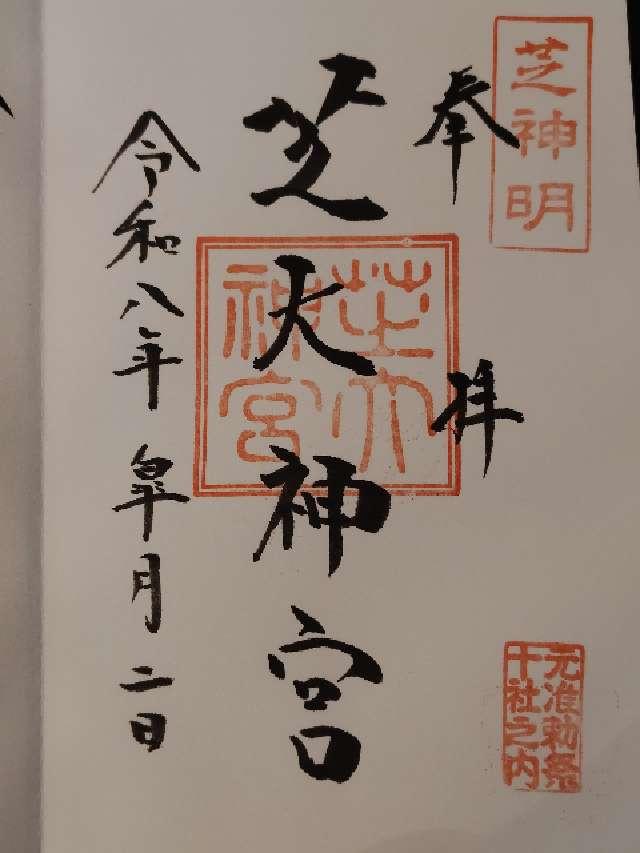 芝神明
奉拝
芝大神宮
芝大神宮
令和八年皐月二日
元准勅祭
十社之内